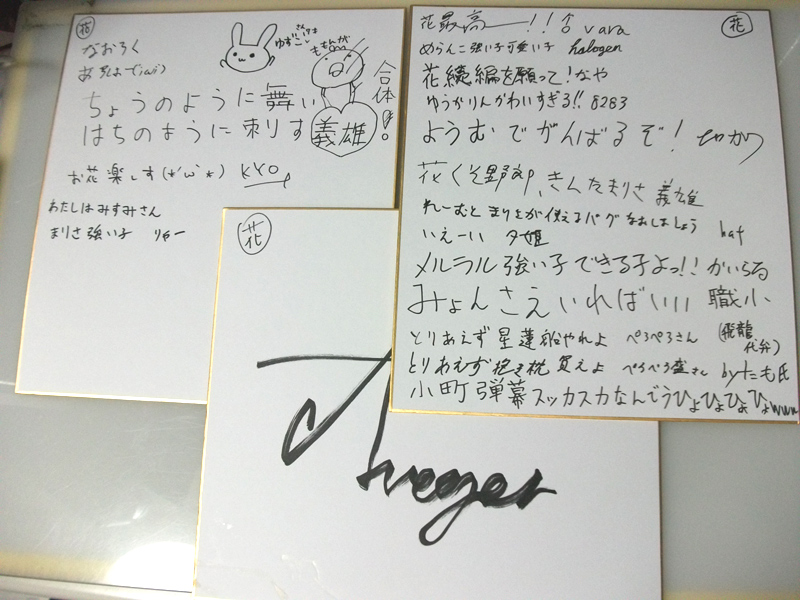 花
なおろく
ちょうのように舞い
はちのように刺りす 義雄
合体!!。
ゆずこし
さんけま
ももんが
お花楽しす(*'ω'*) KYO
わたしはみすみさん
まりさ強い子 りゅー
花
花
花最高ー!!δ vara
めらんこ強い子可愛い子 halogen
花続編を願って!なや
ゆうかりんかわいすぎる!! 8283
ようむでがんばるぞ!
花くそ野郎、きんたまりさ 義雄
れーむとまりさが使えるバグなおしましょう hat
いえーい 夕姫
メルラル強い子できる子よっ!! かいらる
みょんさえいればいい 職小
とりあえず星蓮船やれよ ぺろぺろさん (飛龍代弁)
とりあえず抱き枕買えよ ぺろぺろ盛さん byたも氏
小町弾幕スッカスカなんでうひょひょひょひょwww